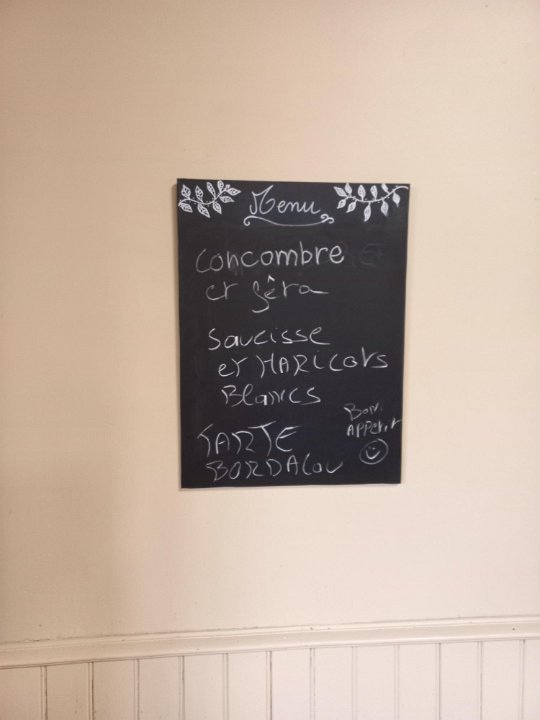 Menu
concombre
et fêta
Saucisse
et HARicots
Blancs
TARTE
BORDALou
Bon
APPétit